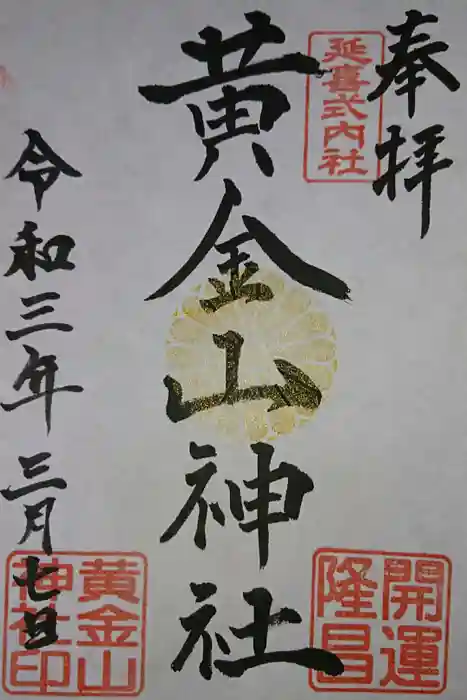 奉拝
延喜式内社
黄金山神社
開運
隆昌
令和三年三月七日
黄金山
神社印